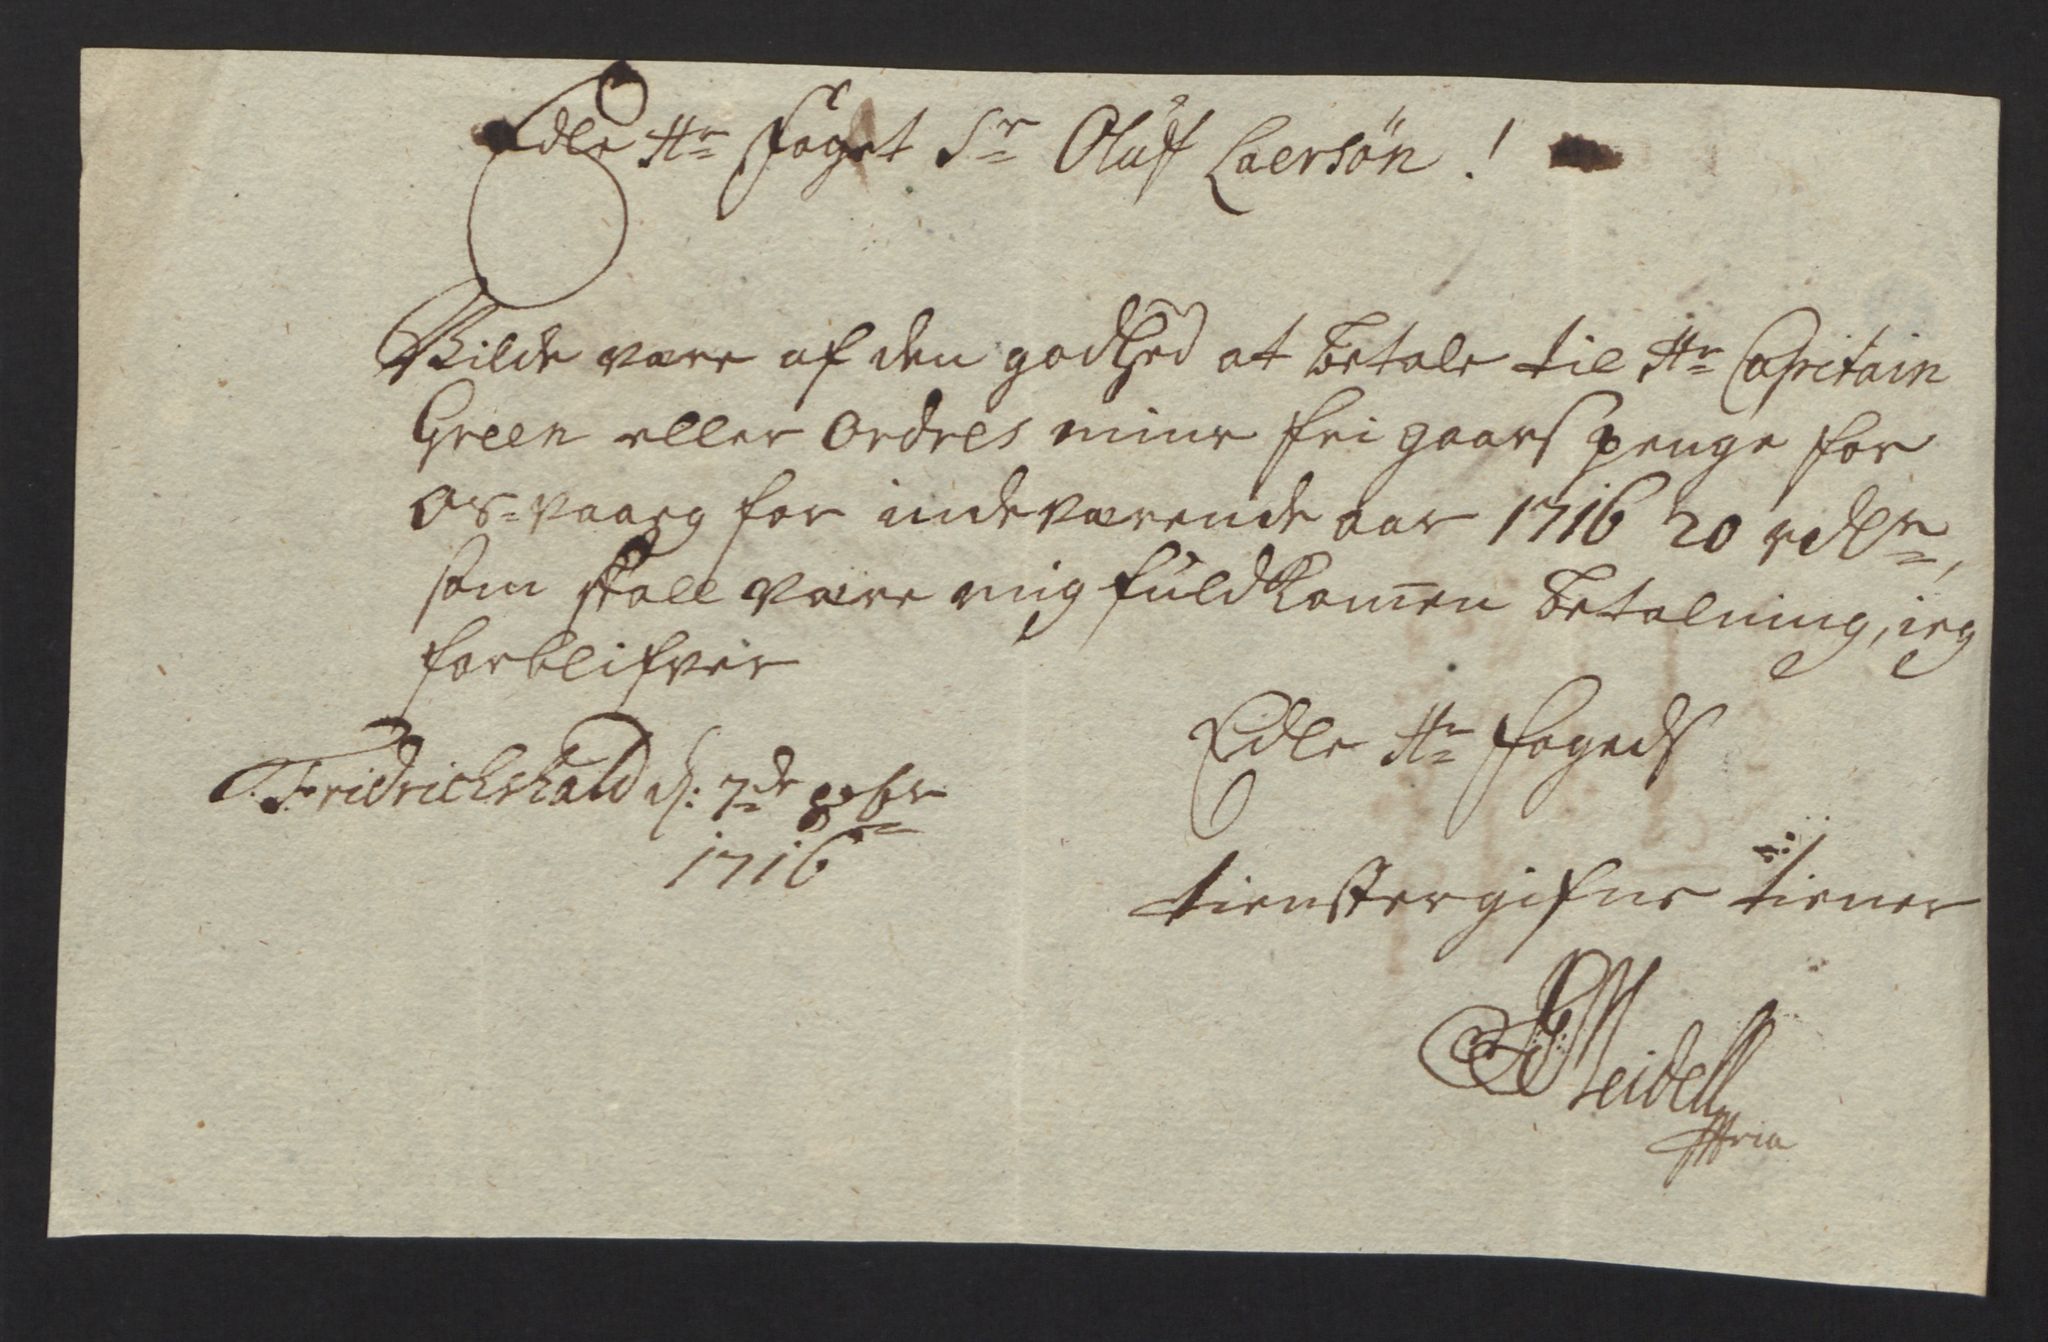 Edle Hr Foget Sr Oluf Laersön!
Wilde være af den godhed at betale til Hr Capitain
Green eller Ordres mine fri gaars penge for
Os-vaarg for indeværende aar 1716 20 rdlr,
som skall være mig fuldkom̄en betalning, ieg
forblifver
Edle Hr fogeds
Fridrichshald d: 7de
1716
tienstergifne tiener
Meidell